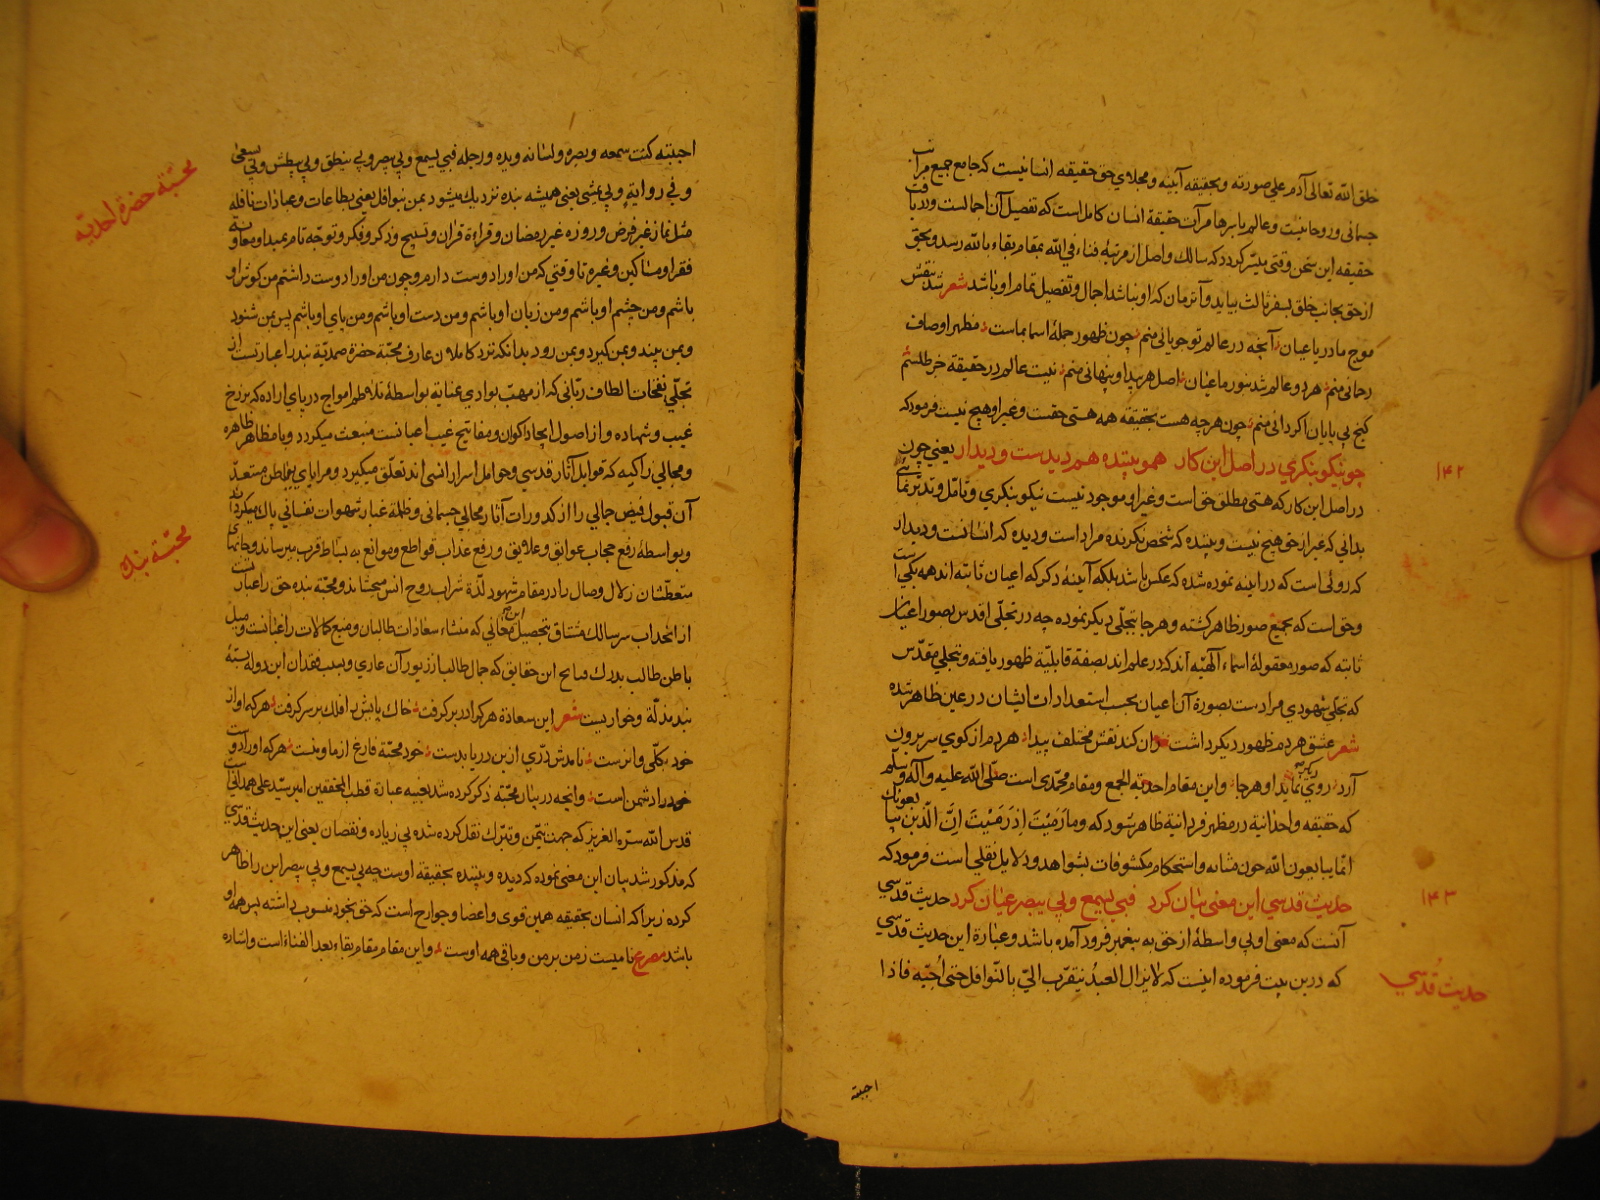 خلق الله تعالی آدم علی صورته و بحقیقه آیینه و مجلای حق حقیقه انسانیست که جامع جمیع مراتب
جسمانی و روحانیست و عالم باسرها مرآت حقیقة انسان کامل است که تفصیل آن اجمالست و دریافت
حقیقه این سخن وقتی میسّر کردد که سالک واصل از مرتبهٔ فناء فی الله بمقام بقاء بالله رسد و بحق
از حق بجانب خلق بسفر ثالث بیاید و آنزمان که او نباشد اجمال و تفصیل تمام او باشد شعر شد نقش
موج ما دریا عیان آنچه در عالم تو جویائی منم چون ظهور جملهٔ اسما بماست مظهر اوصاف
رحمانی منم هر دو عالم شد بنور ما عیان اصل هر پیدا و پنهانی منم نیست عالم در حقیقة جز طلسم
کنج بی پایان اکر دانی منم چون هرچه هست بحقیقه همه هستی حقست و غیر او هیچ نیست فرمود که
چو نیکو بنکری در اصل این کار همو بیننده هم دیدست و دیدار یعنی چون
۱۴۲
در اصل این کار که هستی مطلق حق است و غیر او موجود نیست نیکو بنکری و تأمّل و تدبّر نمائی
بدانی که غیر از حق هیچ نیست و بیننده که شخص نکرنده مراد است و دیده که انسانست و دیدار
که روئی است که در آیینه نموده شده که عکس باشد بلکه آیینهٔ دکر که اعیان ثابته اند همه یکی است
و حق است که بجمیع صور ظاهر کشته و هرجا بتجلّی دیکر نموده چه در تجلّی اقدس بصور اعیان
ثابته که صور معقولهٔ اسماء الهیّه اند که در علم اند بصفة قابلیّة ظهور یافته و بتجلی مقدّس
که تجلّی شهودی مراد ست بصورة آن اعیان بحسب استعدادات ایشان در عین ظاهر شده
شعر عشق هر دم ظهور دیکر داشت زان کند نقش مختلف پیدا هر دم از کوی سر برون
آرد روی دیکر نماید او هرجا و این مقام احدیّة الجمع و مقام محمّدی است صلّی الله علیه و آله و سلّم
که حقیقه واحدانیة در مظهر فردانیة ظاهر شود که وما رَمَیْتَ اِذ رَمَیْتَ اِنَّ الّذین یبایعونک
انّما یبایعون الله چون متانه و استحکام مکشوفات بشواهد و دلایل نقلی است فرمود که
حدیث قدسی این معنی بیان کرد فبی یسمع و بی یبصر عیان کرد حدیث قدسی
۱۴۳
آنست که معنی او بی واسطهٔ از حق به پیغمبر فرود آمده باشد و عبارة این حدیث قدسی
که درین بیت فرموده اینست که لا یزال العبدُ یتقرّب الیّ بالنّوافل حتی اُحِبّه فاذا
حدیث قُدسی
احببته
احببته کنت سمعه و بصره و لسانه و یده و رجله فبی یسمع و بی یبصر و بی ینطق و بی یبطش و بی یسعی
محبّة حضرة احدیّه
و فی روایة و بی یمشی یعنی همیشه بنده نزدیك میشود بمن بنوافل یعنی بطاعات و عبادات نافله
مثل نماز غیر فرض و روزه غیر رمضان و قراءة قرآن و تسبیح و ذکر و فکر و توجّه تام بمبدا و معاونة
فقرا و مساکین و غیره تا وقتی که من او را دوست دارم و چون من او را دوست داشتم من کوش او
باشم و من چشم او باشم و من زبان او باشم و من دست او باشم و من پای او باشم پس بمن شنود
و بمن بیند و بمن کیرد و بمن رود بدانکه نزد کاملان عارف محبّة حضرة صمدیّة بنده را عبارتست از
تجلّی نفحات الطاف ربّانی که از مهبّ بوادی عنایة بواسطهٔ تلاطم امواج دریای اراده که برزخ
غیب و شهاده و از اصول ایجاد اکوان و مفاتیح غیب اعیانست منبعث میکردد و بامظاهر طاهره
و مجالی زاکیه که قوابل آثار قدسی و حوامل اسرار انسی اند تعلّق میکیرد و مرایای بواطن مستعدّ
آن قبول فیض جمالی را از کدورات آثار مجالی جسمانی و ظلمة غبار شهوات نفسانی پاك میکرداند
و بواسطهٔ رفع حجاب عوایق و علایق و رفع عذاب قواطع و موانع به بساط قرب میرساند و جانهای
محبّة بنده
متعطّشان زلال وصال را در مقام شهود لذّة شراب روح انس میچشاند و محبّة بنده حق را عبارتست
از انجذاب سر سالك مشتاق بتحصیل این معانی که منشاء سعادات طالبان و منبع کمالات راغبانست و میل
باطن طالب بدرك فبایح این حقایق که جمال طالب از زیور آن عاری و بسبب فقدان این دوله بستهٔ
بند مذلّة و خواریست شعر این سعادة هر کرا در بر کرفت خاك پایش بر افلاك بر سر کرفت هر که او از
خود بکلّی وانرست نامدش درّی ازین دریا بدست خود محبّة فارغ از ما و منست هر که او را دوست
خود را دشمن است و آنچه در بیان محبّة ذکر کرده شد بعینه عبارة قطب المحققین امیر سیّد علی همدانی است
قدس الله سرّه العزیز که جهت تیمّن و تبرّك نقل کرده شد بی زیاده و نقصان یعنی این حدیث قدسی
که مذکور شد بیان این معنی نموده که دیده و بیننده بحقیقة اوست چه بی یسمع و بی یبصر این را ظاهر
کرده زیرا که انسان بحقیقه همین قوی و اعضا و جوارح است که حق بخود منسوب داشته پس همه او
باشد مصرع نامیست ز من بر من و باقی همه اوست و این مقام مقام بقاء بعد الفناء است و اشاره